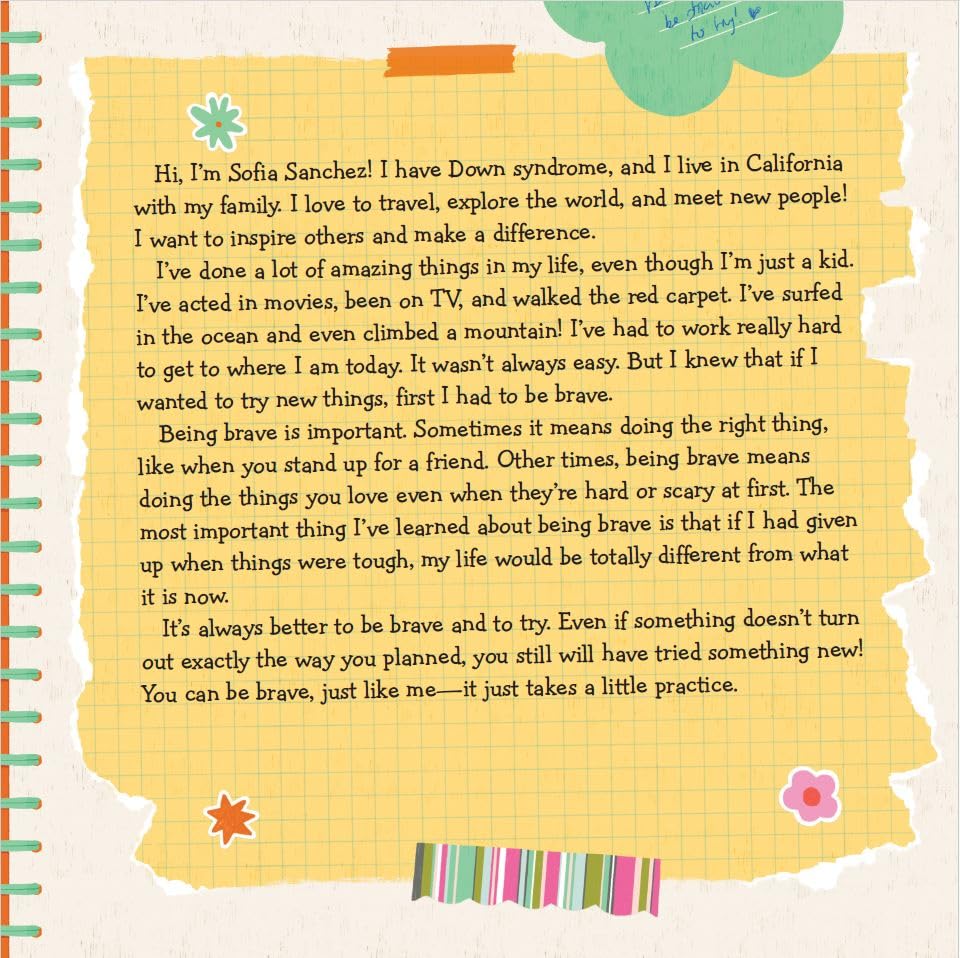 be
to try!
Hi, I'm Sofia Sanchez! I have Down syndrome, and I live in California
with my family. I love to travel, explore the world, and meet new people!
I want to inspire others and make a difference.
I've done a lot of amazing things in my life, even though I'm just a kid.
I've acted in movies, been on TV, and walked the red carpet. I've surfed
in the ocean and even climbed a mountain! I've had to work really hard
to get to where I am today. It wasn't always easy. But I knew that if I
wanted to try new things, first I had to be brave.
Being brave is important. Sometimes it means doing the right thing,
like when you stand up for a friend. Other times, being brave means
doing the things you love even when they're hard or scary at first. The
most important thing I've learned about being brave is that if I had given
up when things were tough, my life would be totally different from what
it is now.
It's always better to be brave and to try. Even if something doesn't turn
out exactly the way you planned, you still will have tried something new!
You can be brave, just like me—it just takes a little practice.